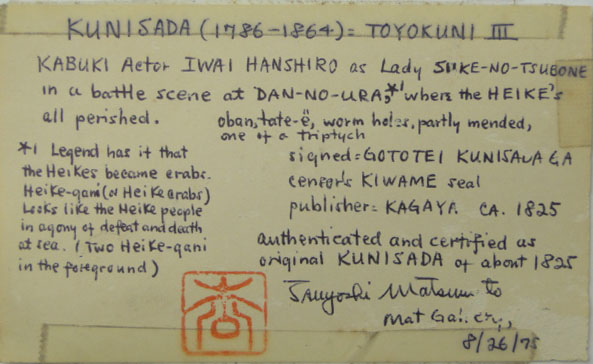 KUNISADA (1786-1864) = TOYOKUNI III
KABUKI Actor IWAI HANSHIRO as Lady SUKE-NO-TSUBONE
in a battle scene at DAN-NO-URA,*1 where the HEIKE's
all perished.
oban, tate-ë, worm holes, partly mended,
one of a triptych
*1 Legend has it that
the Heikes became crabs.
Heike-gani (or Heike crabs)
Looks like the Heike people
in agony of defeat and death
at sea. (Two Heike-gani
in the foreground)
signed = GOTOTEI KUNISADA GA
censor's KIWAME seal
publisher = KAGAYA CA. 1825
authenticated and certified as
original KUNISADA of about 1825
Matsumoto
Mat Gallery,
8/26/75